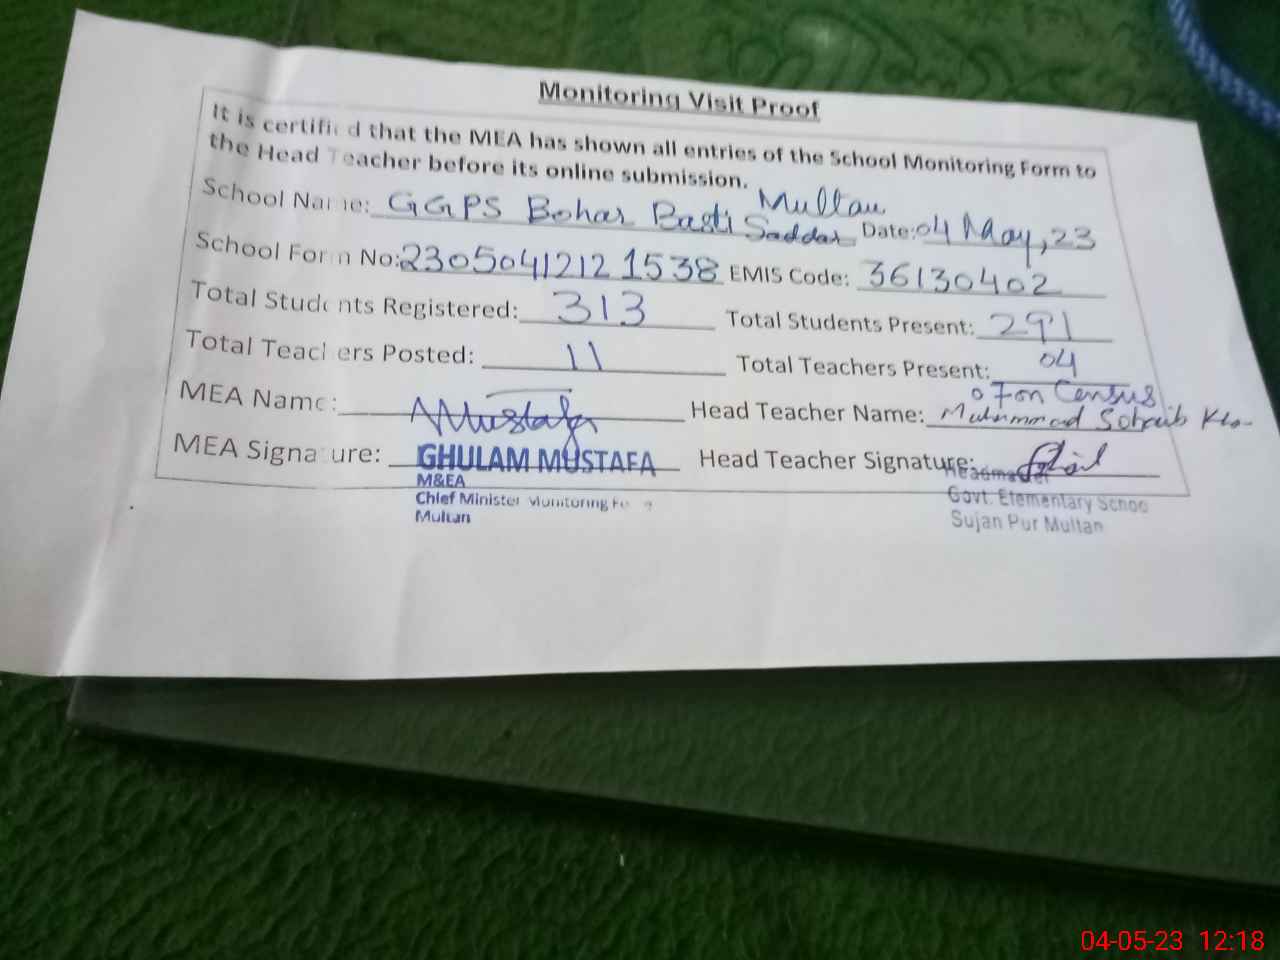 Monitoring Visit Proof
It is certified that the MEA has shown all entries of the School Monitoring Form to
the Head Teacher before its online submission.
School Name: GGPS Bohar Basti Saddar Multan Date: 04 May, 23
School Form No: 2305041212 1538 EMIS Code: 36130402
Total Students Registered: 313 Total Students Present: 291
Total Teachers Posted: 11 Total Teachers Present: 04
07 on Census
MEA Name: Mustafa Head Teacher Name: Muhammad Sohaib
MEA Signature: Head Teacher Signature:
GHULAM MUSTAFA
M&EA
Chief Minister Monitoring
Multan
Headmaster
Govt. Elementary Schoo
Sujan Pur Multan
04-05-23 12:18